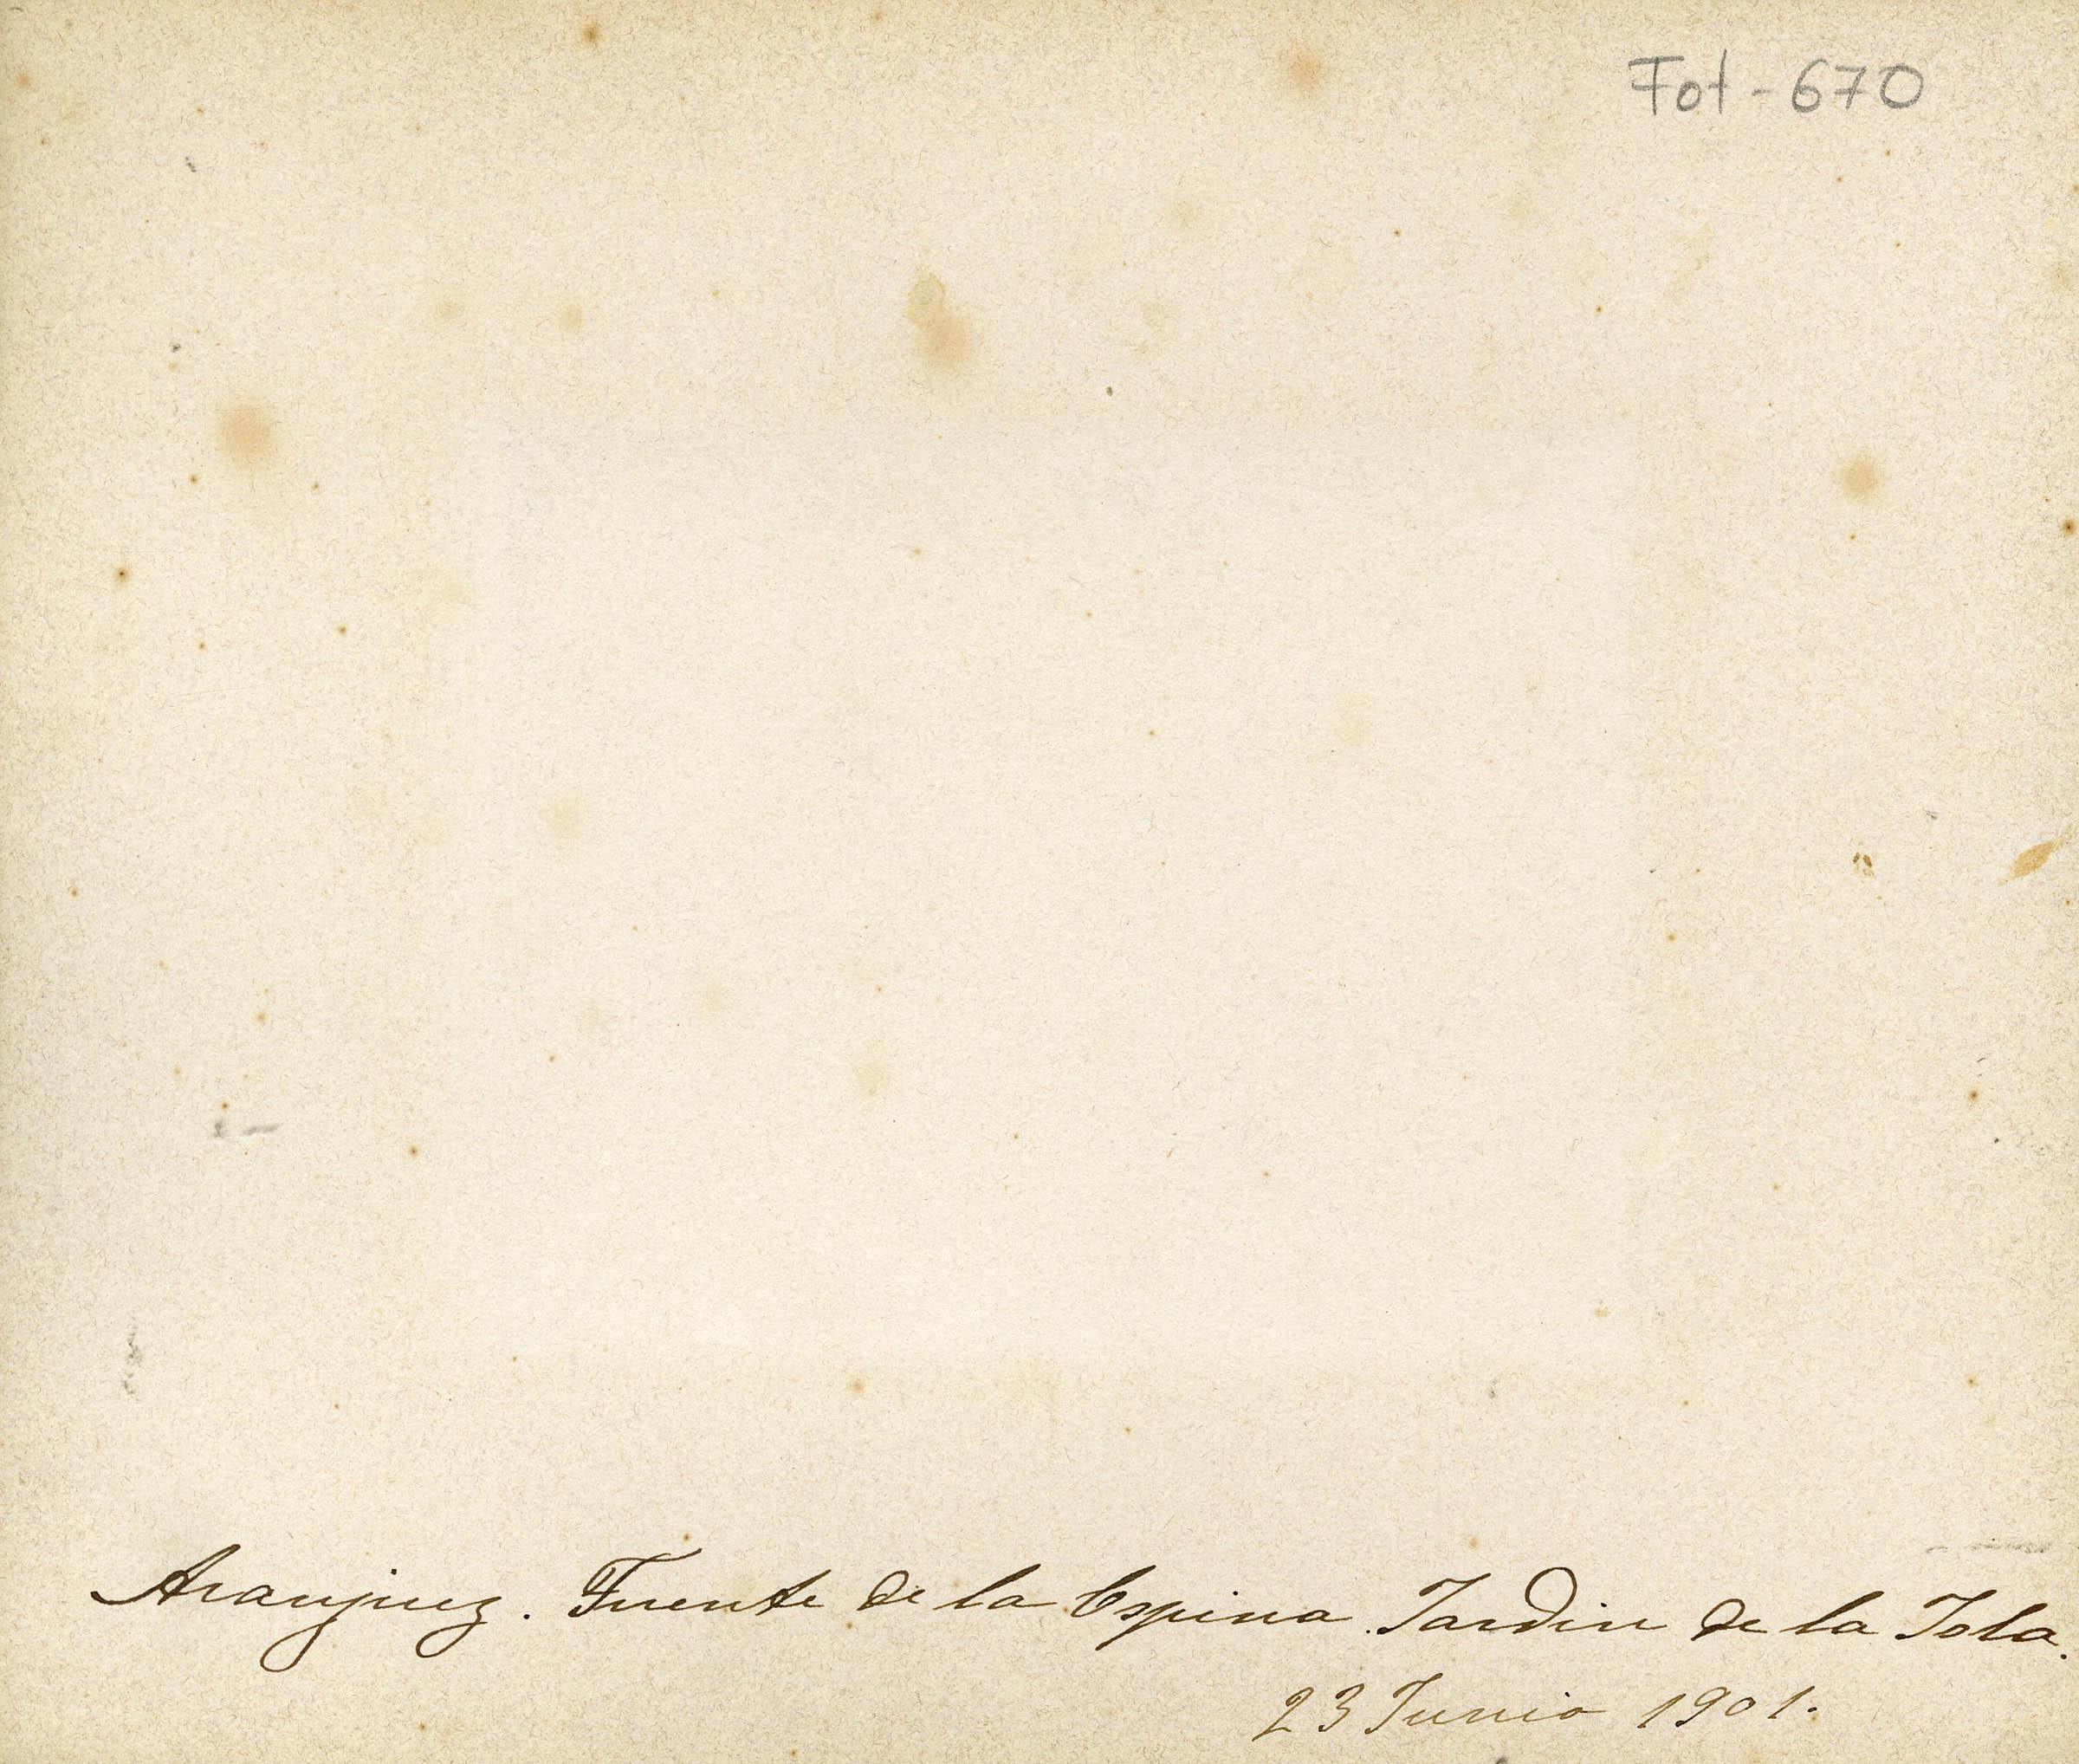 Fot - 670
Aranjuez. Fuente de la Espina. Jardin de la Isla.
23 Junio 1901.